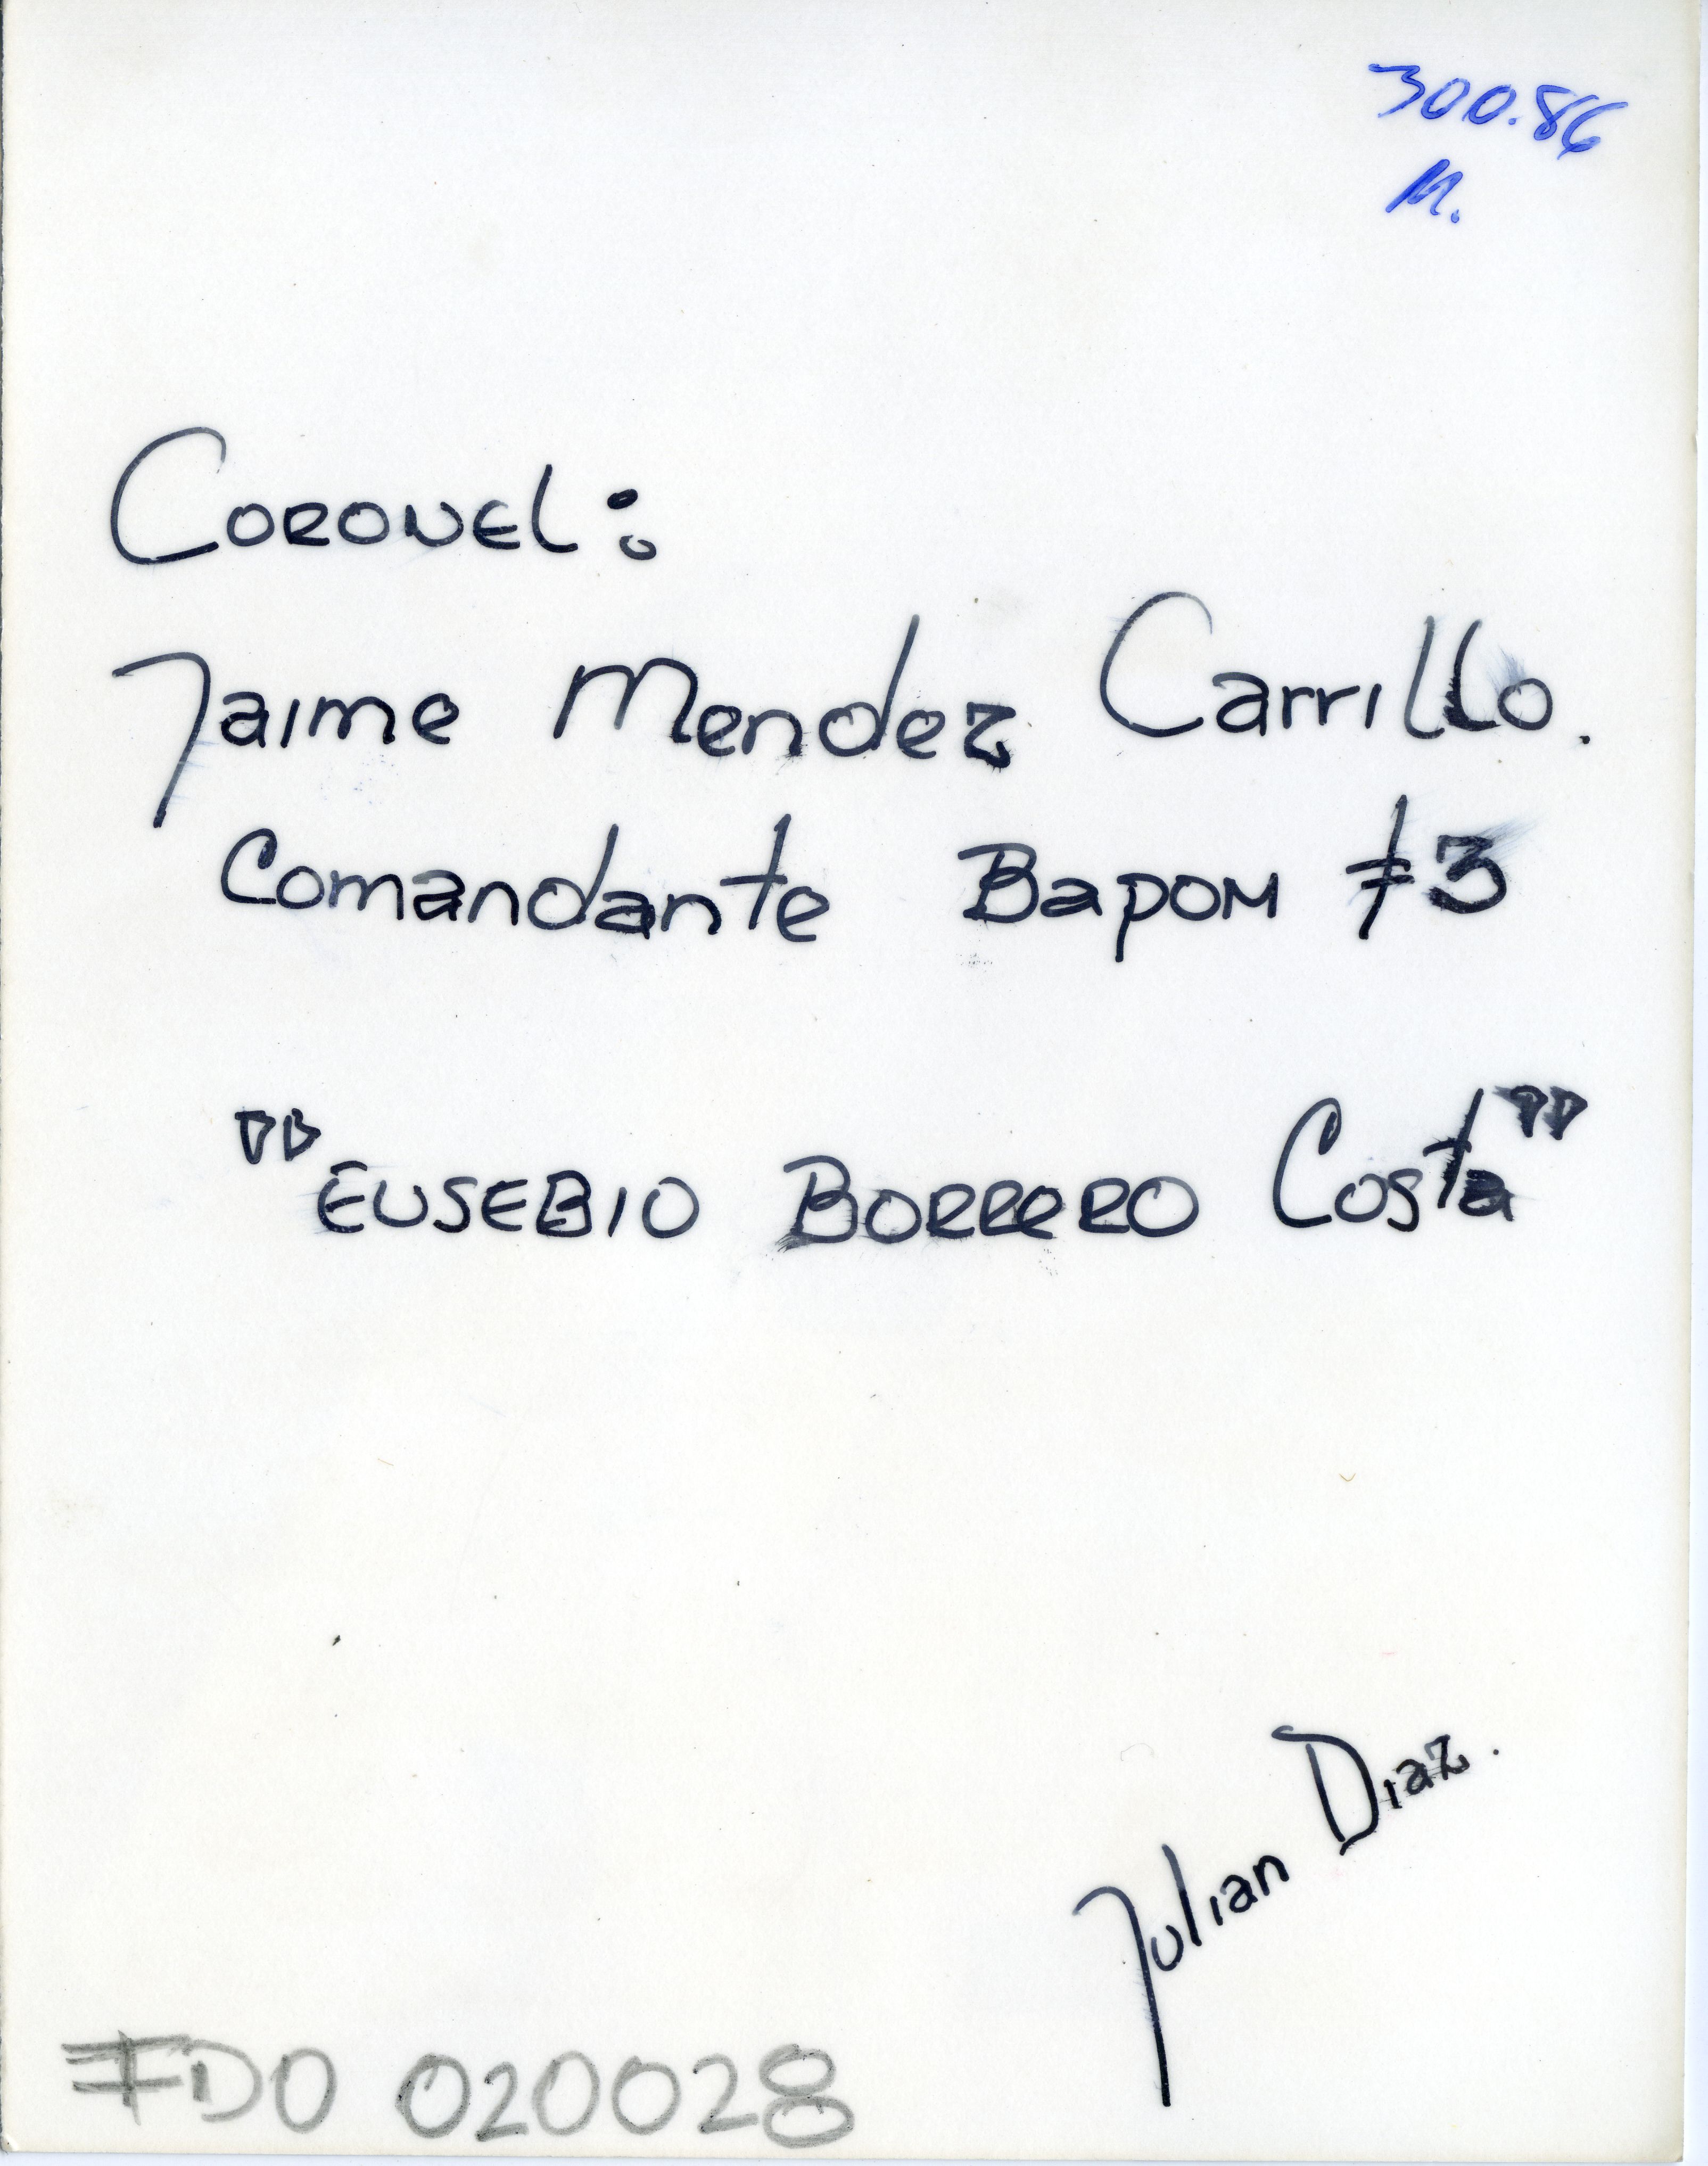 300.86
M.
Coronel:
Jaime Mendez Carrillo.
Comandante Bapom #3
"Eusebio Borrero Costa"
Julian Diaz.
FDO 020028